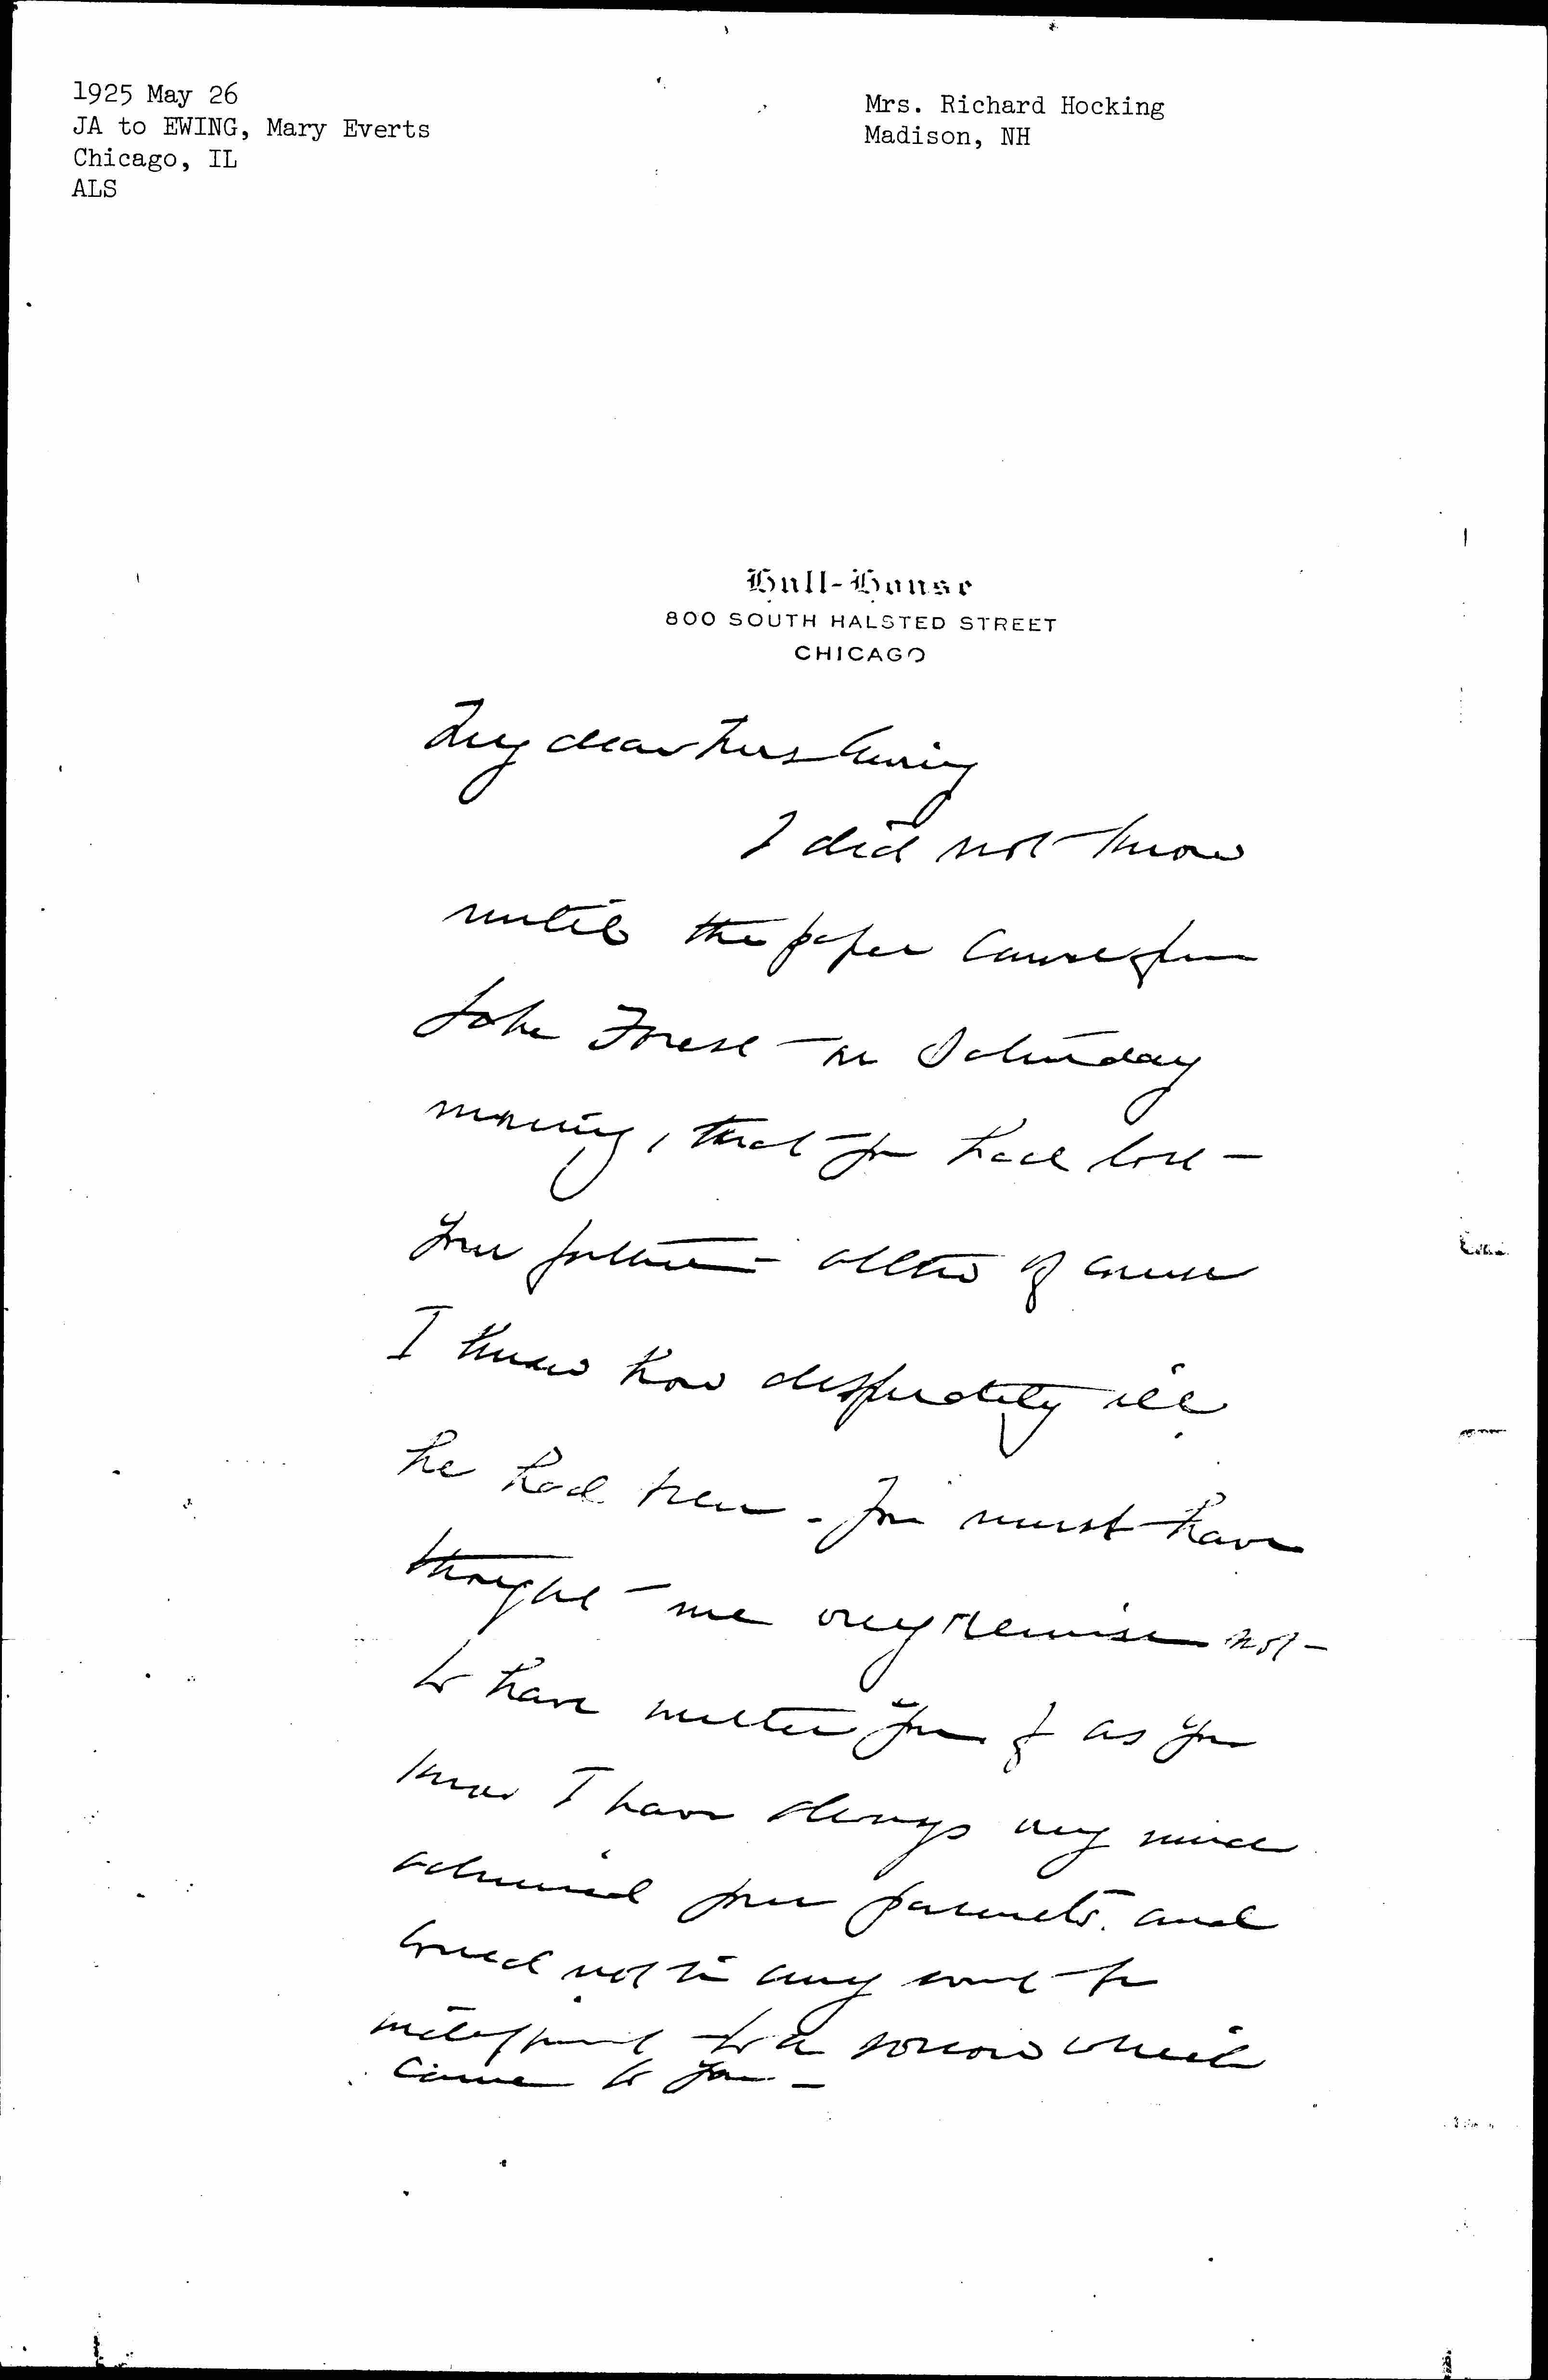 1925 May 26
JA to EWING, Mary Everts
Chicago, IL
ALS
Mrs. Richard Hocking
Madison, NH
Hull-House
800 SOUTH HALSTED STREET
CHICAGO
My dear Mrs Ewing
I did not know
until the paper came from
Lake Forest on Saturday
morning, that you had lost
your father - altho of course
I knew how desperately ill
he had been. You must have
thought me very remiss not
to have written you & as you
know I have always very much
admired your parents. and
could not in any event be
indifferent to a sorrow which
came to you -